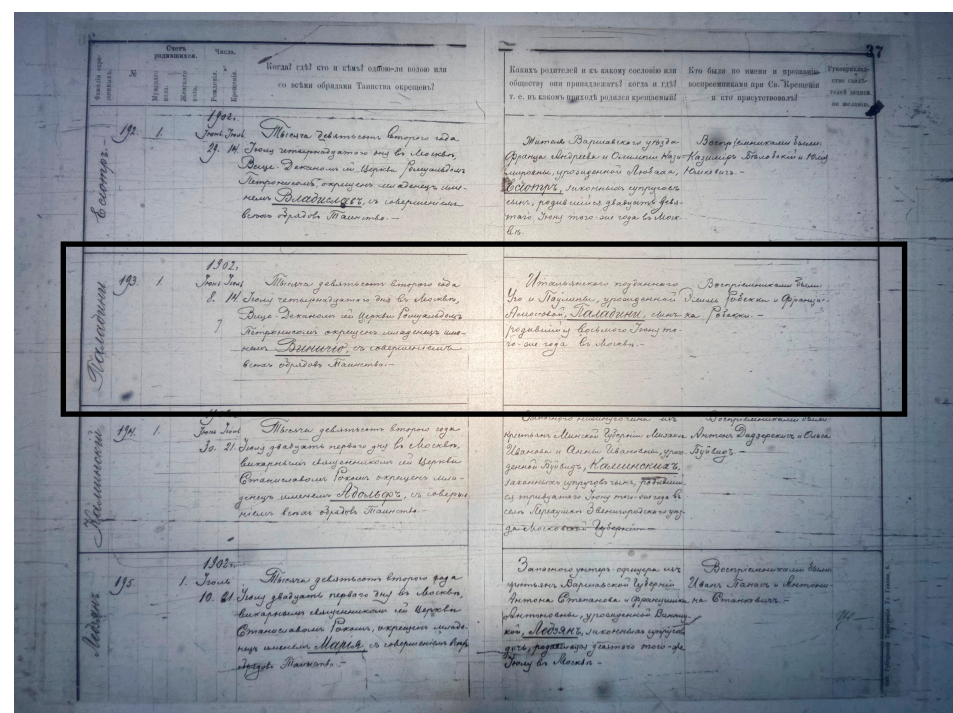 37
Фамилія окрещенныхъ.
№
Счетъ родившихся.
Мужескаго пола.
Женскаго пола.
Числа.
Рожденія.
Крещенія.
Когда? гдѣ? кто и кѣмъ? одною-ли водою или
со всѣми обрядами Таинства окрещенъ?
Какихъ родителей и къ какому сословію или
обществу они принадлежатъ? когда и гдѣ?
т. е. въ какомъ приходѣ родился крещаемый?
Кто были по имени и прозванію
воспріемниками при Св. Крещеніи
и кто присутствовалъ?
Рукоприкладство свидѣтелей записи по желанію.
192. 1.
1902.
Іюнь Іюль
29. 14.
Тысяча девятьсотъ второго года
Іюля четырнадцатого дня въ Москвѣ,
Вице-Деканомъ сей Церкви Ромуальдомъ
окрещенъ младенецъ име-
немъ Владиславъ, съ совершеніемъ
всѣхъ обрядовъ Таинства. —
Жителя Варшавскаго уѣзда
Франца Андреева и Олимпіи Кази-
мировны, урожденной
законныхъ супруговъ
сынъ, родившійся двадцать девя-
таго Іюня того-же года въ Моск-
вѣ.
Воспріемниками были:
Казимиръ и Юлія
Юцкевичъ. —
Паладини
193. 1.
1902.
Іюнь Іюль
8. 14.
7
Тысяча девятьсотъ второго года
Іюля четырнадцатого дня въ Москвѣ,
Вице-Деканомъ сей Церкви Ромуальдомъ
окрещенъ младенецъ име-
немъ Виничіо, съ совершеніемъ
всѣхъ обрядовъ Таинства. —
Итальянскаго подданного
Уго и Паулины, урожденной
Паладини, сынъ
родившійся восьмого Іюня то-
го-же года въ Москвѣ. —
Воспріемниками были:
Робекки и Франци-
ка Робекки. —
Калинскій
194. 1.
Іюнь Іюль
30. 21.
Тысяча девятьсотъ второго года
Іюля двадцать перваго дня въ Москвѣ,
викарнымъ священникомъ сей Церкви
Станиславомъ Рокомъ окрещенъ мла-
денецъ именемъ Адольфъ, съ соверше-
ніемъ всѣхъ обрядовъ Таинства. —
изъ
крестьянъ Минской Губерніи Михаила
Иванова и Анны Ивановны, урож-
денной Буйвидъ, Калинскихъ,
законныхъ супруговъ сынъ, родивший-
ся тридцатаго Іюня того-же года въ
селѣ Перхушковѣ Звенигородскаго уѣз-
да Московской Губерніи. —
Воспріемниками были:
Антонъ и Ольга
Буйвидъ. —
195. 1.
1902.
Іюль
10. 21.
Тысяча девятьсотъ второго года
Іюля двадцать перваго дня въ Москвѣ,
викарнымъ священникомъ сей Церкви
Станиславомъ Рокомъ, окрещенъ младе-
нецъ именемъ Марія, съ совершеніемъ всѣхъ
обрядовъ Таинства. —
Запасного унтеръ-офицера изъ
крестьянъ Варшавской Губерніи
Антона Степанова и Францишки
Антоновны, урожденной
Ледзянъ, законныхъ супруговъ
дочь, родившаяся десятаго того-же
Іюля въ Москвѣ. —
Воспріемниками были:
Иванъ Панасъ и Антони-
на Станкевичъ. —